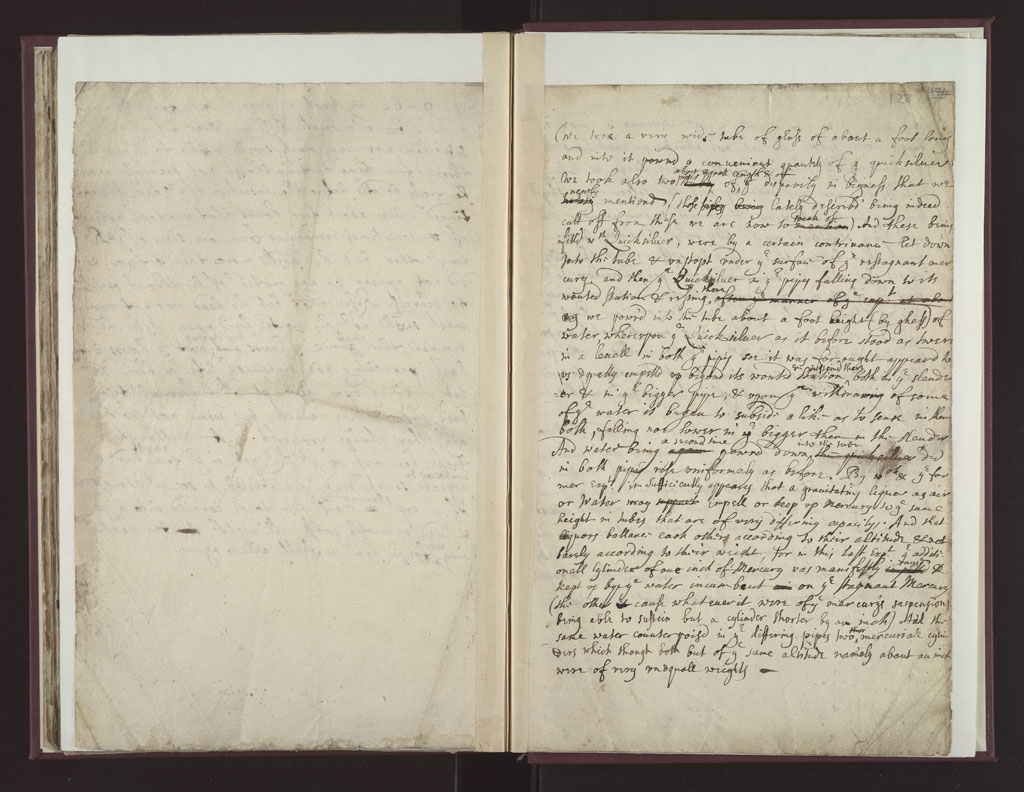 128
(We took a very wide tube of glass of about a foot long
and into it powrd a convenient quantity of quicksilver
about equall length & of
We took also two of yt disparity in bigness that we
newly
mentiond, (those lately describd being indeed
speak
cutt off from those we are now to mention) And these being
fill'd wth Quicksilver, were by a certain contrivance let down
into the tube & unstopt under ye surface of ye restagnant mer
cury, and then ye Quicksilver in ye pipes falling down to its
there
wonted station & resting, after ye manner of ye
we powrd into the tube about a foot height (by ghess) of
water, whereupon ye Quicksilver as it before stood as twere
in a levell in both ye pipes soe it was for ought appeard to
us equally impelld up beyond its wonted station both in ye slende
er & in ye bigger pipe, & upon ye withdrawing of some
of ye water it began to subside alike as to sense in them
both, falling not lower in ye bigger then in the slender
a second time into the tube
And water being again powrd down, the quicksilver did
in both pipes rise uniformely as before. By wch & ye for
mer expt. it sufficiently appeares that a gravitating liquor as air
or Water may support impell or keep up Mercury to ye same
height in tubes that are of very differing capacitys. And that
liquors ballance each other according to their altitude & not
barely according to their weight, for in this last Expt ye additi-
onall Cylinder of one inch of Mercury was manifestly &
kept up by ye water incumbent on ye stagnant Mercury
(the other cause whatever it were of ye mercurys suspension
being able to sustein but a cylinder shorter by an inch) And the
same water counterpois'd in ye differing pipes two mercuriall cylin-
ders which though both but of ye same altitude namely about an inch
were of very unequall weights